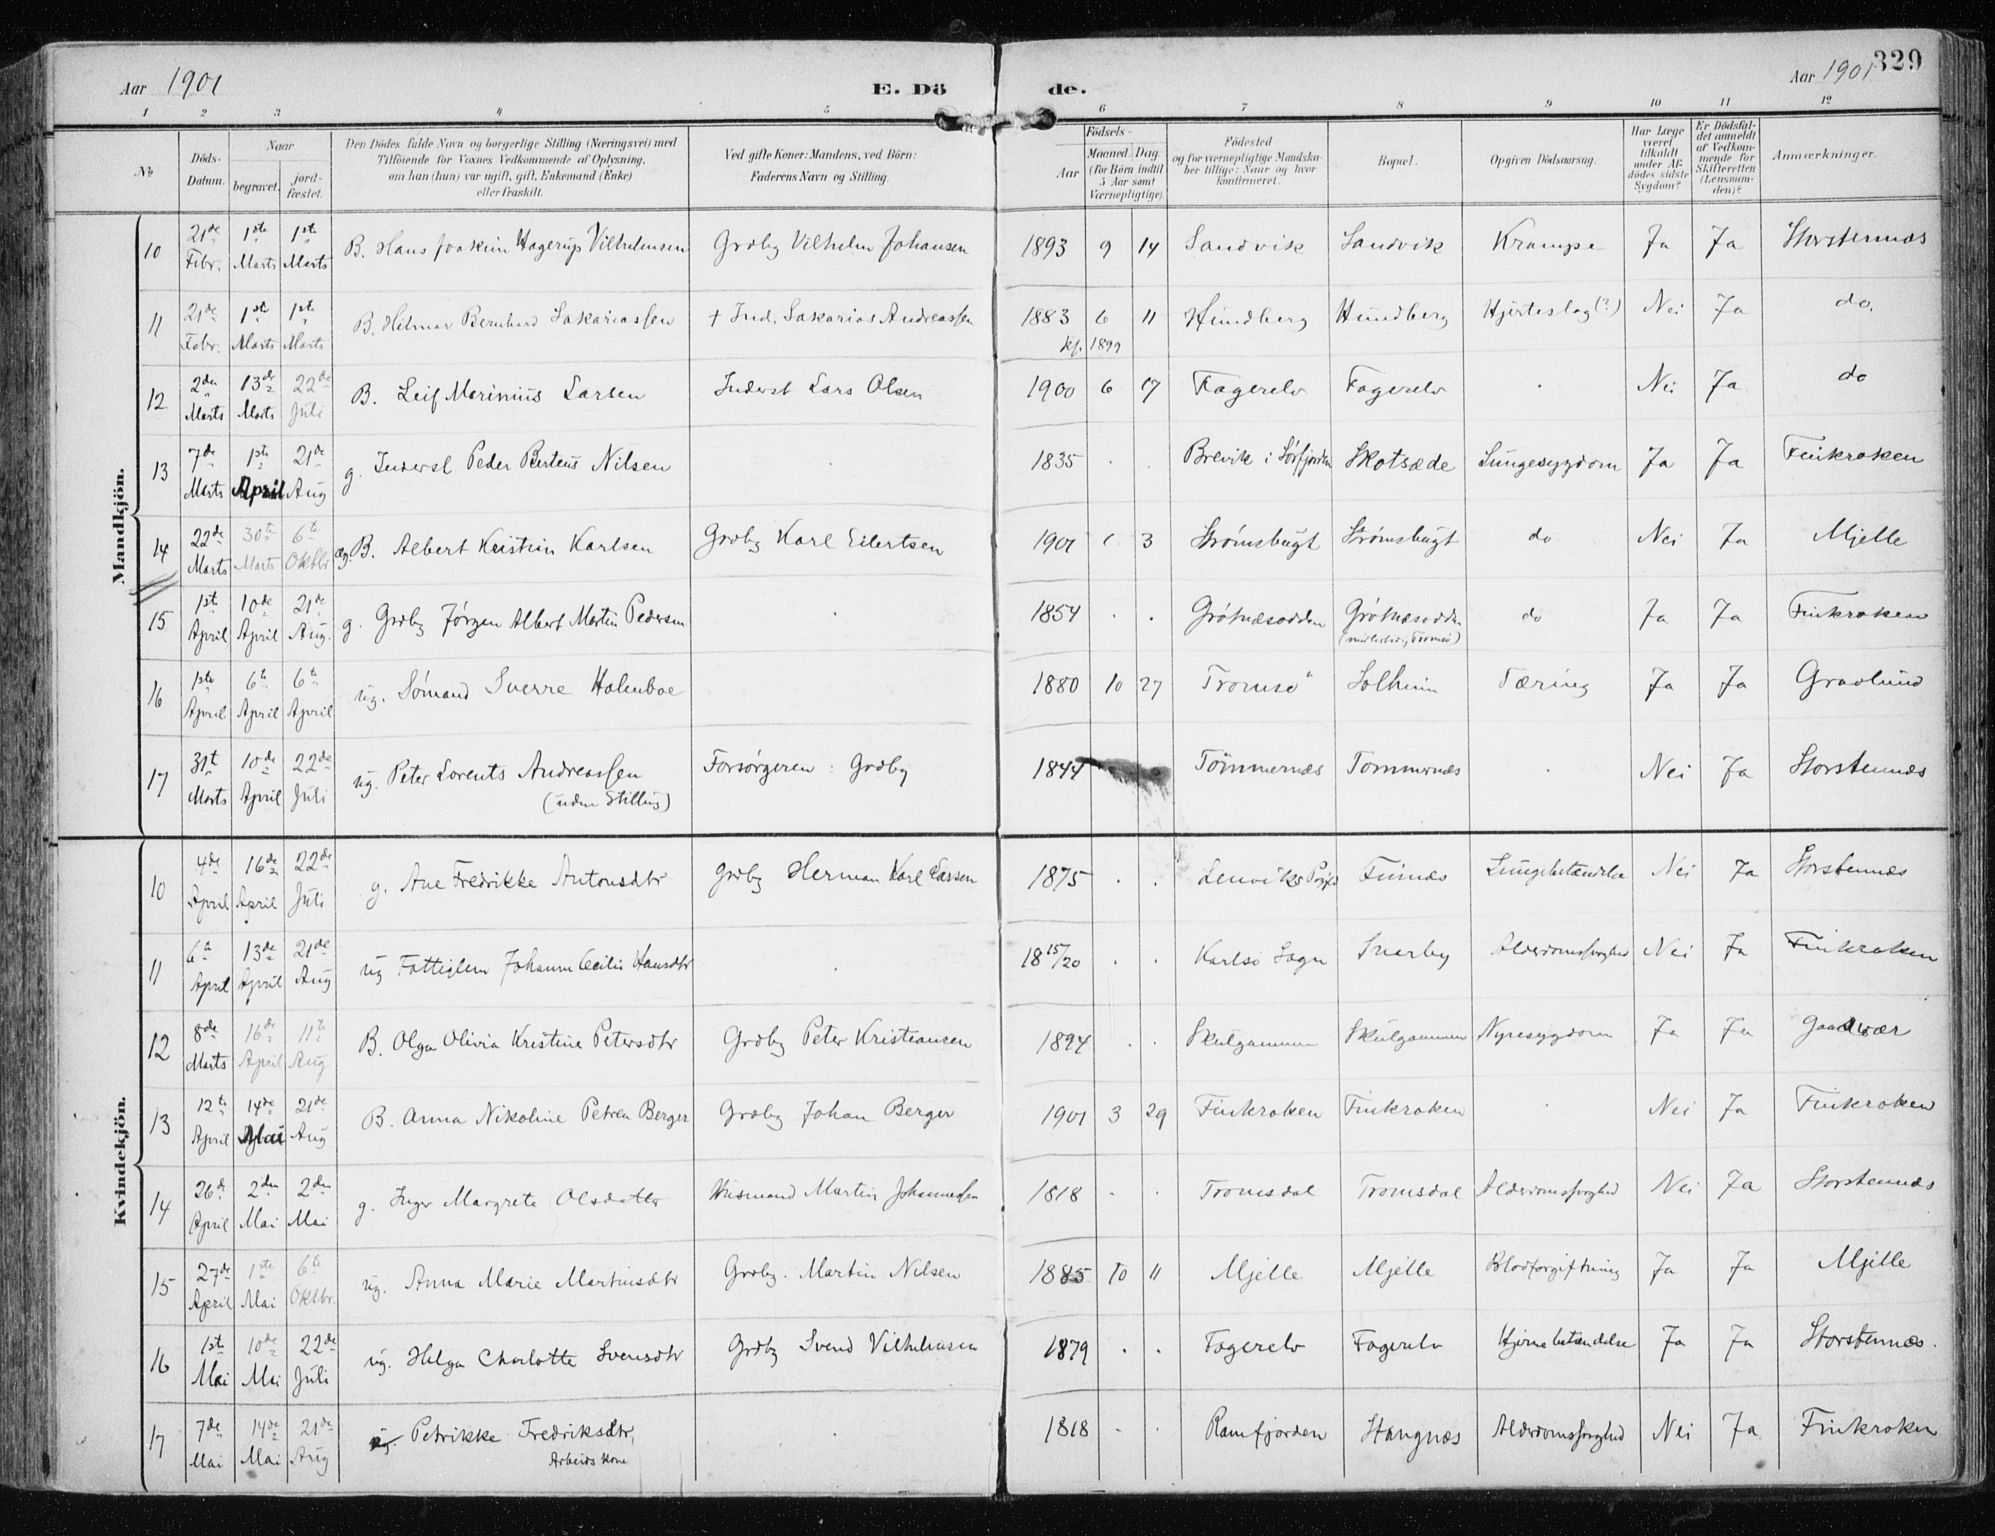 Aar 1901 E. Dö de. Aar 1901 329
1 2 3 4 5 6 7 8 9 10 11 12
№
Döds-Datum.
Naar
begravet.
jordfæstet.
Den Dödes fulde Navn og borgerlige Stilling (Næringsvei) med
Tilföiende for Voxnes Vedkommende af Oplysning,
om han (hun) var ugift, gift, Enkemand (Enke)
eller fraskilt.
Ved gifte Koner: Mandens, ved Börn:
Faderens Navn og Stilling.
Födsels-
Aar
Maaned. Dag.
(for Børn indtil
5 Aar samt
Værnepligtige).
Födested
og for værnepligtige Mandska-
ber tillige: Naar og hvor
konfirmeret.
Bopæl.
Opgiven Dödsaarsag.
Har Læge
været
tilkaldt
under Af-
dödes sidste
Sygdom?
Er Dödsfal-
det anmeldt
af Vedkom-
mende for
Skifteretten
(Lensman-
den)?
Anmærkninger.
Mandkjön.
10 21de Febr. 1ste Marts 1ste Marts B. Hans Joakim Hagerup Vilhelmsen Grdbg Vilhelm Johansen 1893 9 14 Sandvik Sandvik Krampe Ja Ja Storstennæs
11 21de Febr. 1ste Marts 1ste Marts B. Hilmar Bernhard Sakariassen + Ind. Sakarias Andreassen 1883 6 11 Hundberg Hundberg Hjerteslag (?) Nei Ja do.
kf. 1899
12 2den Marts 13de Marts 22de Juli B. Leif Marinius Larsen Inderst Lars Olsen 1900 6 17 Fagerelv Fagerelv . Nei Ja do
13 7de Marts 1ste April 21de Aug g. Inderst Peder Berteus Nilsen . 1835 . . Brevik i Sørfjorden Skotsæde Lungesygdom Ja Ja Finkroken
14 22de Marts 30te Marts 6te Oktbr æg. B. Albert Kristian Karlsen Grdbg Karl Eilertsen 1901 3 Strømsbugt Strømsbugt do Nei Ja Mjelle
15 1ste April 10de April 21de Aug. g. Grdbg Jørgen Albert Martin Pedersen . 1854 . . Grötnæsodden Grötnæsodden do Ja Ja Finkroken
(midlertidig Tromsö)
16 1ste April 6te April 6te April ug. Sömand Sverre Holmboe 1880 10 27 Tromsö Solheim Tæring Ja Ja Gravlund
17 31t Marts 10de April 22de Juli ug. Peter Lorents Andreassen Forsörgeren: Grdbg 1844 Tömmernæs Tommernæs . Nei Ja Storstennæs
(uden Stilling)
Kvindekjön.
10 4de April 16de April 22de Juli g. Ane Fredrikke Antonsdtr Grdbg Herman Karl Larsen 1875 . . Lenviks Prgjld Finnæs Lungebetændelse Nei Ja Storstennæs
11 6te April 13de April 21de Aug ug Fattiglem Johanna Cecilie Hansdtr . 18 15/20 . . Karlsö Sogn Snarby Alderdomssvaghed Nei Ja Finkroken
12 8de Marts 16de April 11te Aug B. Olga Olivia Kristine Petersdtr Grdbg Peter Kristiansen 1894 . . Skulgammen Skulgammen Nyresygdom Ja Ja Gaasvær
13 12te April 14de Mai 21de Aug B. Anna Nikoline Petrea Berger Grdbg Johan Berger 1901 3 29 Finkroken Finkroken . Nei Ja Finkroken
14 26de April 2den Mai 2den Mai g. Inger Margrete Olsdatter Husmand Martin Johannessen 1818 . . Tromsdal Tromsdal Alderdomssvaghed Nei Ja Storstennæs
15 27de April 1ste Mai 6te Oktbr. ug. Anna Marie Martinsdtr Grdbg. Martin Nilsen 1885 10 11 Mjelle Mjelle Blodforgiftning Ja Ja Mjelle
16 1ste Mai 10de Mai 22de Juli ug. Helga Charlotte Svensdtr Grdbg Svend Vilhelmsen 1879 . . Fagerelv Fagerelv Hjernebetændelse Ja Ja Storstennæs.
17 7de Mai 14de Mai 21de Aug ug. Petrikke Fredriksdtr, . 1818 . . Ramfjorden Stangnæs Alderdomssvaghed Nei Ja Finkroken
Arbeids Kone